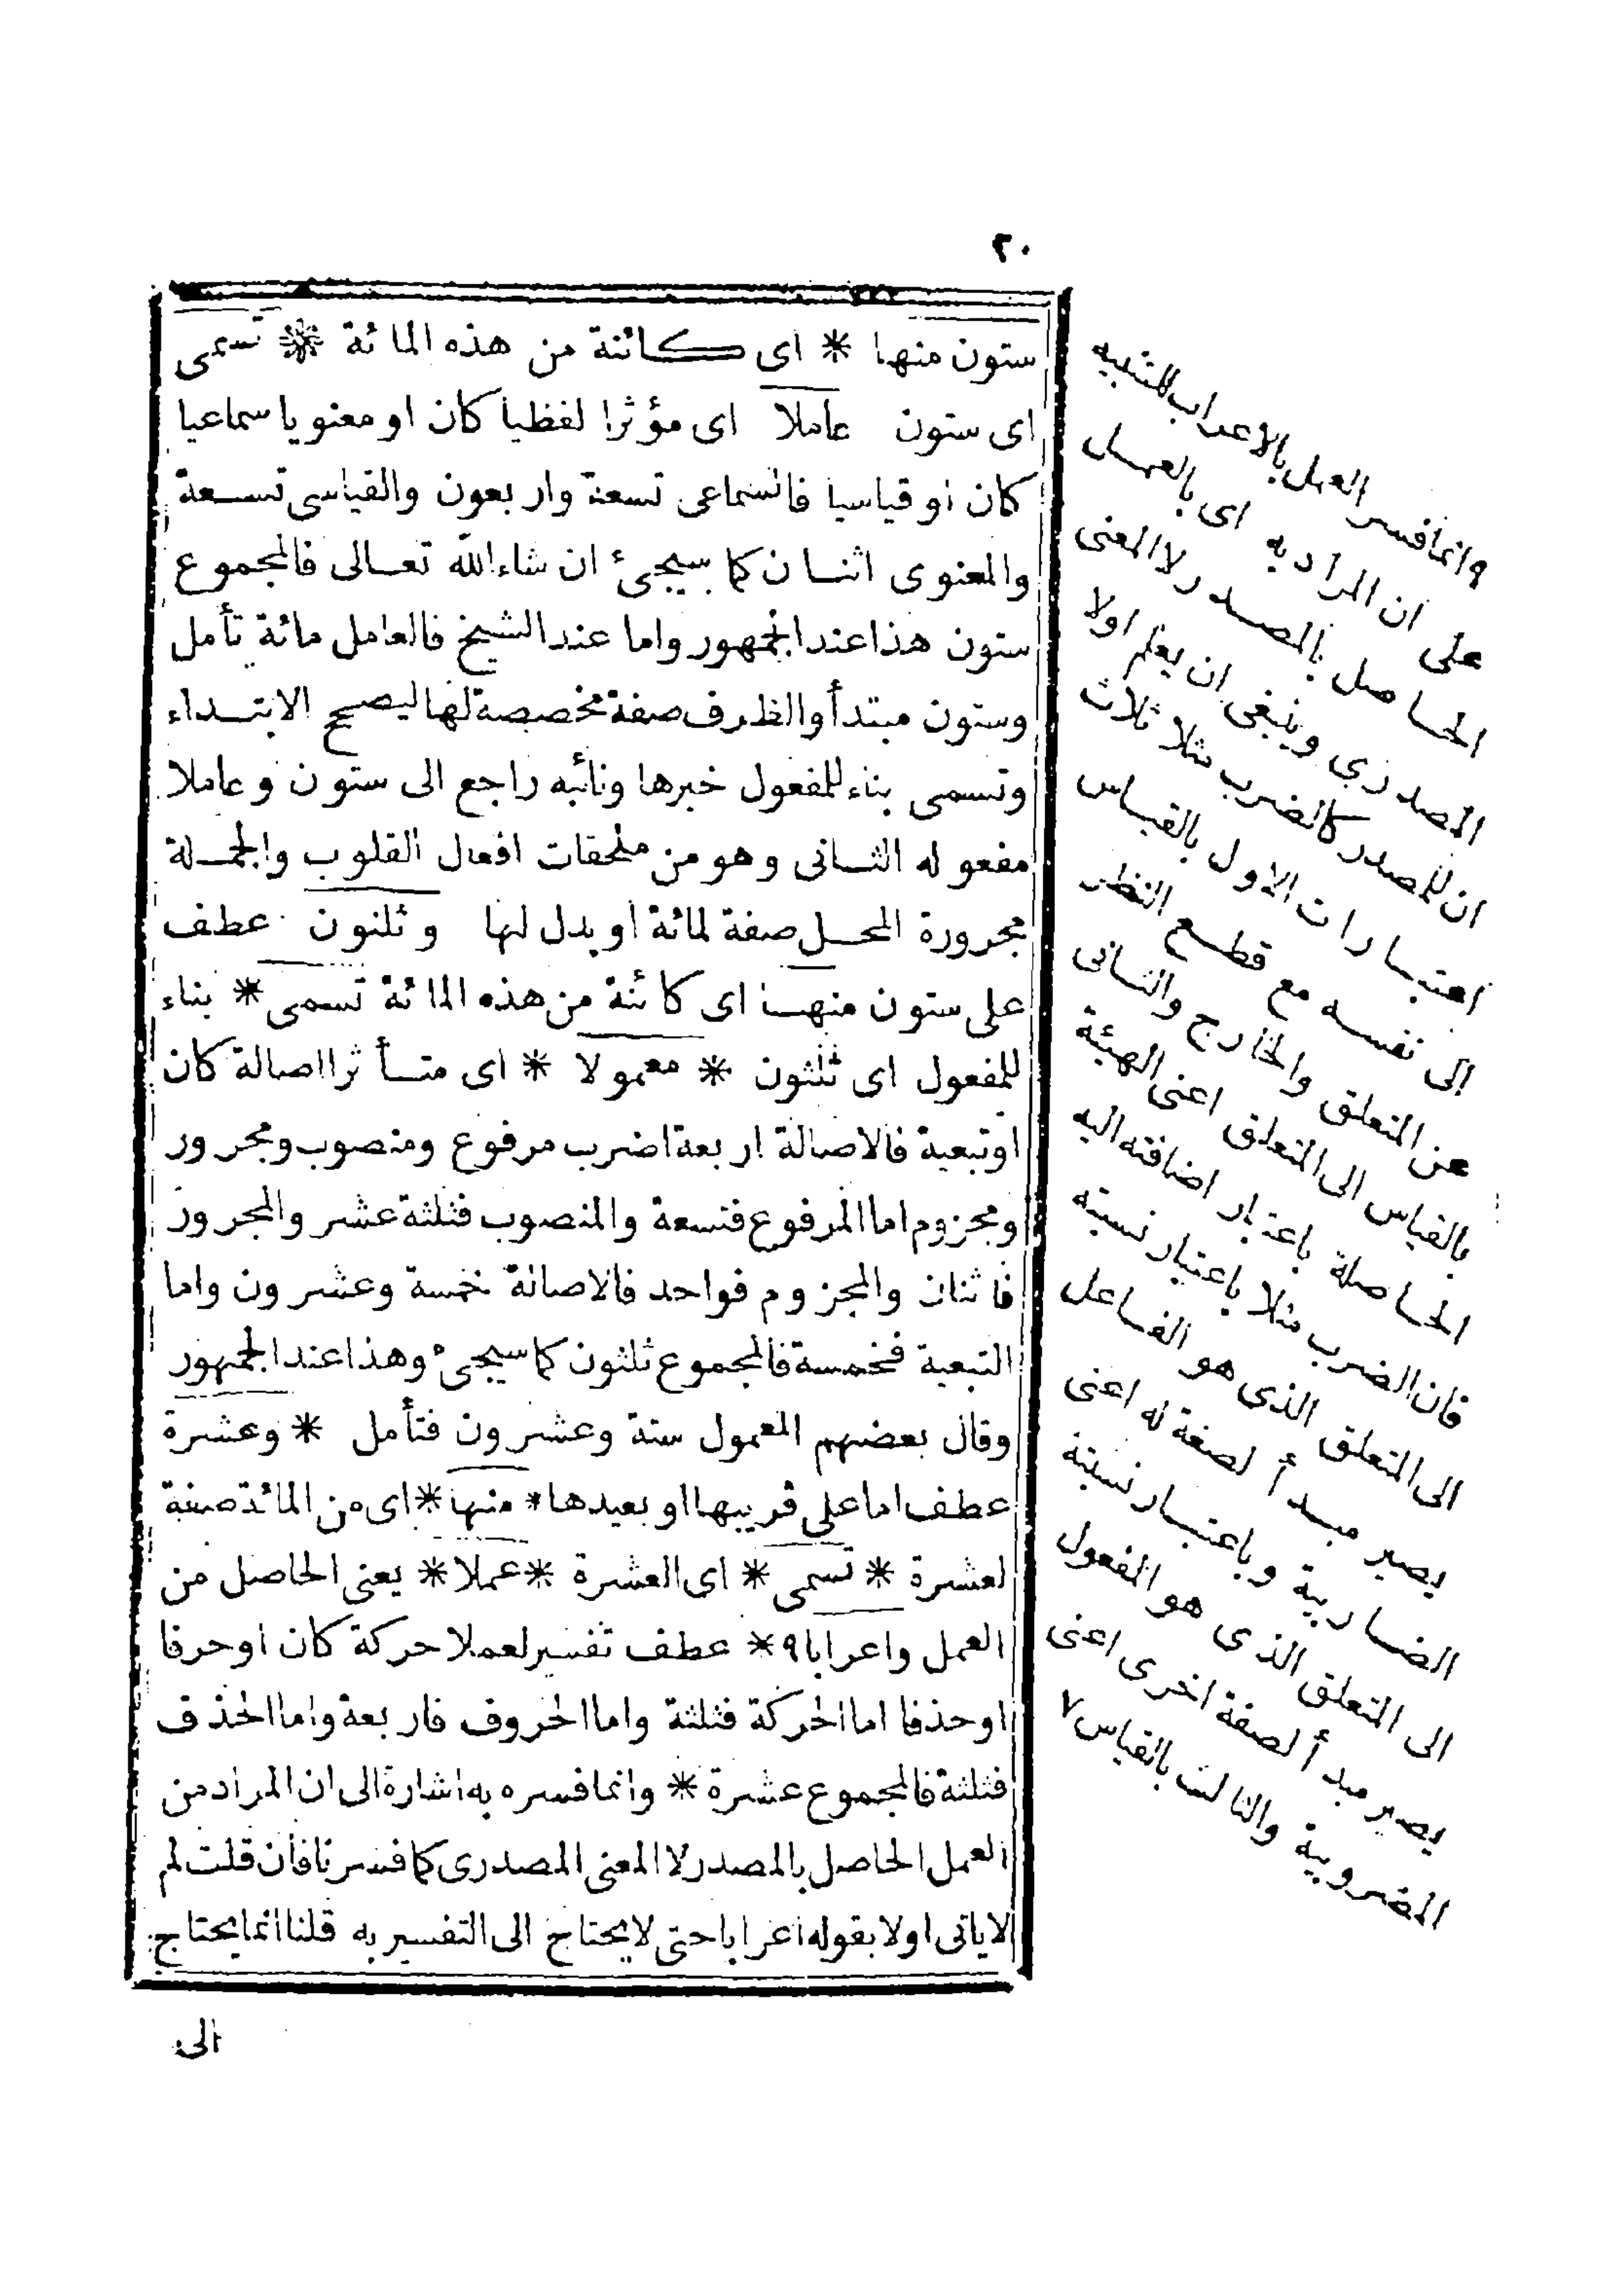 ٢٠
ستون منها * اى كائنة من هذه المائة * تسمى
اى ستون عاملا اى مؤثرا لفظيا كان او معنويا سماعيا
كان او قياسيا فالسماعى تسعة واربعون والقياسى تسعة
والمعنوى اثنان كما سيجئ ان شاء الله تعالى فالمجموع
ستون هذا عند الجمهور واما عند الشيخ فالعامل مائة تأمل
وستون مبتدأ والظرف صفة مخصصة لها ليصح الابتداء
وتسمى بناء للمفعول خبرها ونائبه راجع الى ستون وعاملا
مفعوله الثانى وهو من ملحقات افعال القلوب والجملة
مجرورة المحل صفة لمائة او بدل لها وثلثون عطف
على ستون منها اى كائنة من هذه المائة تسمى * بناء
للمفعول اى ثلثون * معمولا * اى متأثرا اصالة كان
او تبعية فالاصالة اربعة اضرب مرفوع ومنصوب ومجرور
ومجزوم اما المرفوع فتسعة والمنصوب فثلثة عشر والمجرور
فاثنان والمجزوم فواحد فالاصالة خمسة وعشرون واما
التبعية فخمسة فالمجموع ثلثون كما سيجئ وهذا عند الجمهور
وقال بعضهم المعمول ستة وعشرون فتأمل * وعشرة
عطف اما على قريبها او بعيدها * منها * اى من المائة صفة
لعشرة * تسمى * اى العشرة * عملا * يعنى الحاصل من
العمل واعرابا ٩ * عطف تفسير لعملا حركة كان او حرفا
او حذفا اما الحركة فثلثة واما الحروف فاربعة واما الحذف
فثلثة فالمجموع عشرة * وانما فسره به اشارة الى ان المراد من
العمل الحاصل بالمصدر لا المعنى المصدرى كما فسرنا فان قلت لم
لا ياتى اولا بقوله اعرابا حتى لا يحتاج الى التفسير به قلنا انما يحتاج
الى
٩ وانما فسر العمل بالاعراب للتنبيه
على ان المراد به اى بالعمل
الحاصل بالمصدر لا المعنى
المصدرى وينبغى ان يعلم اولا
ان للمصدر كالضرب مثلا ثلاث
اعتبارات الاول بالقياس
الى نفسه مع قطع النظر
عن المتعلق والخارج والثانى
بالقياس الى المتعلق اعنى الهيئة
الحاصلة باعتبار اضافته اليه
فان الضرب مثلا باعتبار نسبته
الى المتعلق الذى هو الفاعل
يصير مبدأ لصفة له اعنى
الضاربية وباعتبار نسبته
الى المتعلق الذى هو المفعول
يصير مبدأ لصفة اخرى اعنى
المضروبية والثالث بالقياس ٧